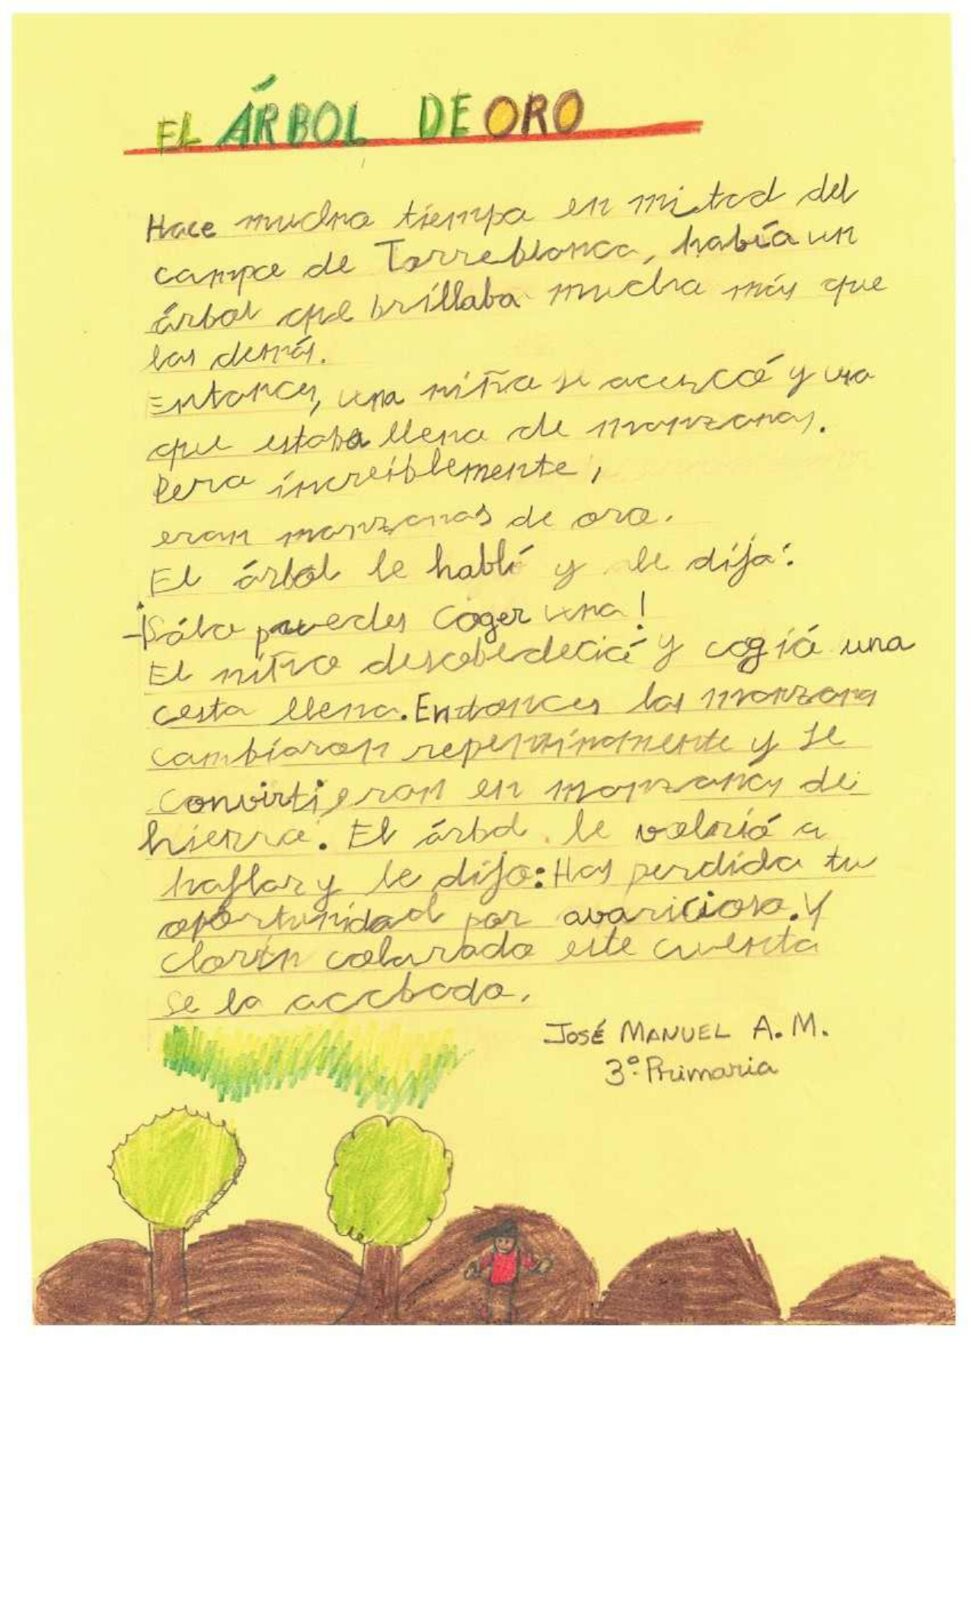 EL ÁRBOL DE ORO
Hace mucho tiempo en mitad del
campo de Torreblanca, había un
árbol que brillaba mucho más que
los demás.
Entonces, una niño se acercó y vio
que estaba lleno de manzanas.
Pero increíblemente,
eran manzanas de oro.
El árbol le habló y le dijo:
-¡Sólo puedes coger una!
El niño desobedeció y cogió una
cesta llena. Entonces las manzana
cambiaron repentinamente y se
convirtieron en manzanas de
hierro. El árbol le volvió a
hablar y le dijo: Has perdido tu
oportunidad por avaricioso. Y
clorín colorado este cuento
se la acabado.
JOSÉ MANUEL A. M.
3º Primaria